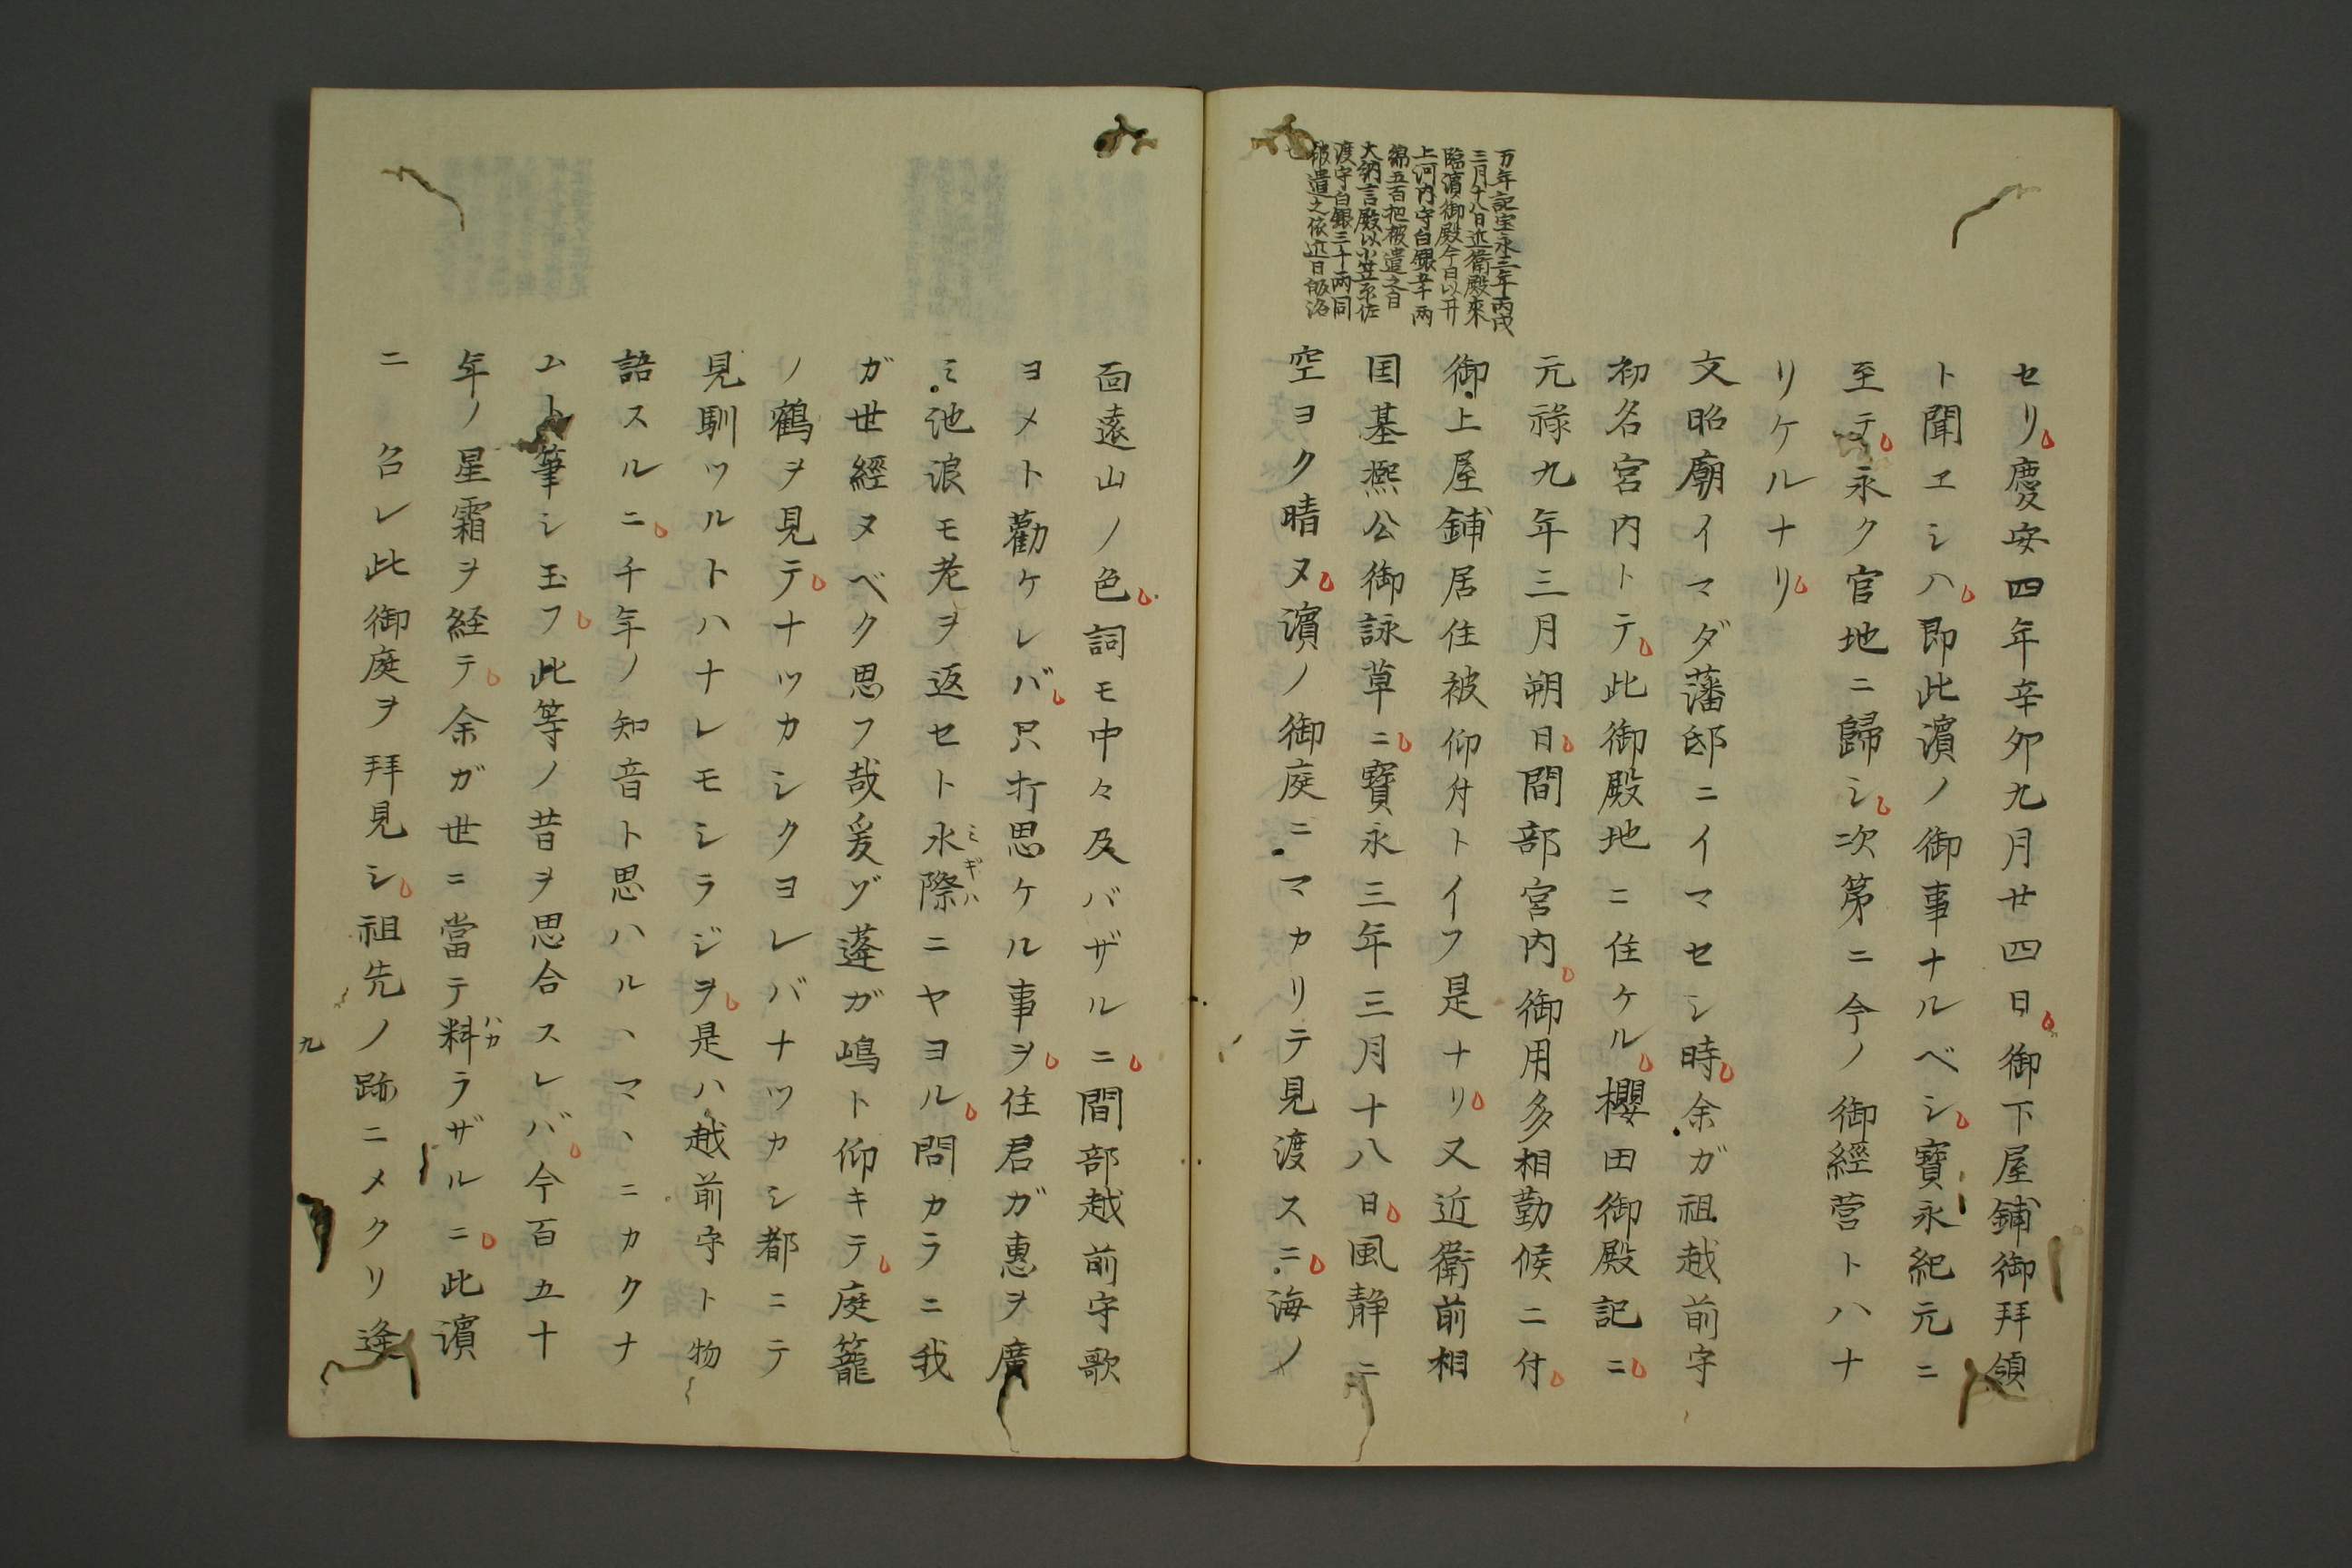 万年記宝永三年丙戌
三月十八日近衛殿来
臨濱御殿今日以井
上河内守白銀五千両
綿五百把被遣之自
大納言殿以小笠原佐
渡守白銀三十両同
被遣之依近日皈洛
セリ慶安四年辛夘九月廿四日御下屋鋪御拜領
ト聞ヱシハ即此濱ノ御事ナルベシ寳永紀元ニ
至テ永ク官地ニ歸シ次第ニ今ノ御經営トハナ
リケルナリ
文昭廟イマダ藩邸ニイマセシ時余ガ祖越前守
初名宮内トテ此御殿地ニ住ケル櫻田御殿記ニ
元禄九年三月朔日間部宮内御用多相勤候ニ付
御上屋鋪居住被仰付トイフ是ナリ又近衛前相
国基熈公御詠草ニ寳永三年三月十八日風静ニ
空ヨク晴ヌ濱ノ御庭ニマカリテ見渡スニ海ノ
面遠山ノ色詞モ中々及バザルニ間部越前守歌
ヨメト勸ケレバ只打思ケル事ヲ住君ガ惠ヲ廣
ミ池浪モ老ヲ返セト水際ニヤヨル問カラニ我
ミギハ
ガ世經ヌベク思フ哉爰ゾ蓬ガ嶋ト仰キテ庭籠
ノ鶴ヲ見テナツカシクヨレバナツカシ都ニテ
見馴ツルトハナレモシラジヲ是ハ越前守ト物
語スルニ千年ノ知音ト思ハルヽマヽニカクナ
ムト筆シ玉フ此等ノ昔ヲ思合スレバ今百五十
年ノ星霜ヲ経テ余ガ世ニ當テ料ラザルニ此濱
ハカ
ニ 召レ此御庭ヲ拜見シ祖先ノ跡ニメクリ逢
九